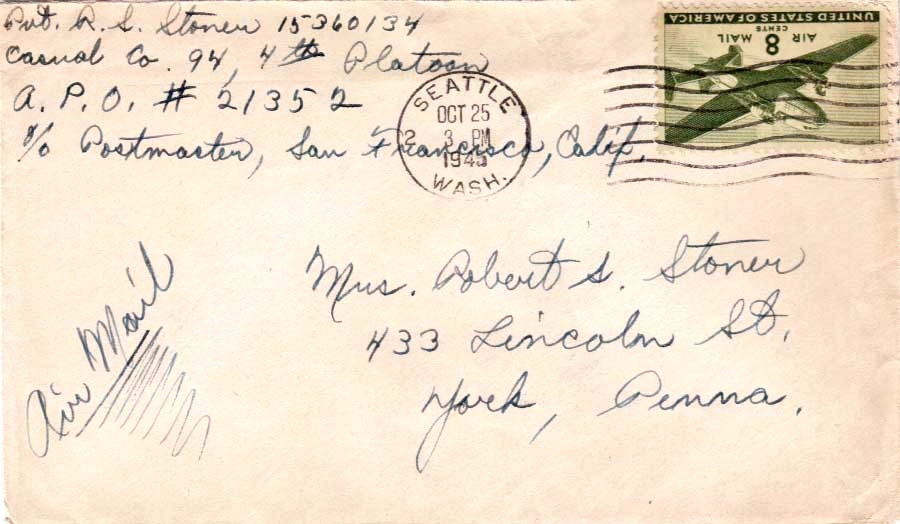 Pvt. R. S. Stoner 15360134
Casual Co. 94, 4th Platoon
A. P. O. # 21352
c/o Postmaster, San Francisco, Calif.
SEATTLE
OCT 25
3 PM
1945
WASH.
2
UNITED STATES OF AMERICA
CENTS
AIR 8 MAIL
Air Mail
Mrs. Robert S. Stoner
433 Lincoln St.
York, Penna.